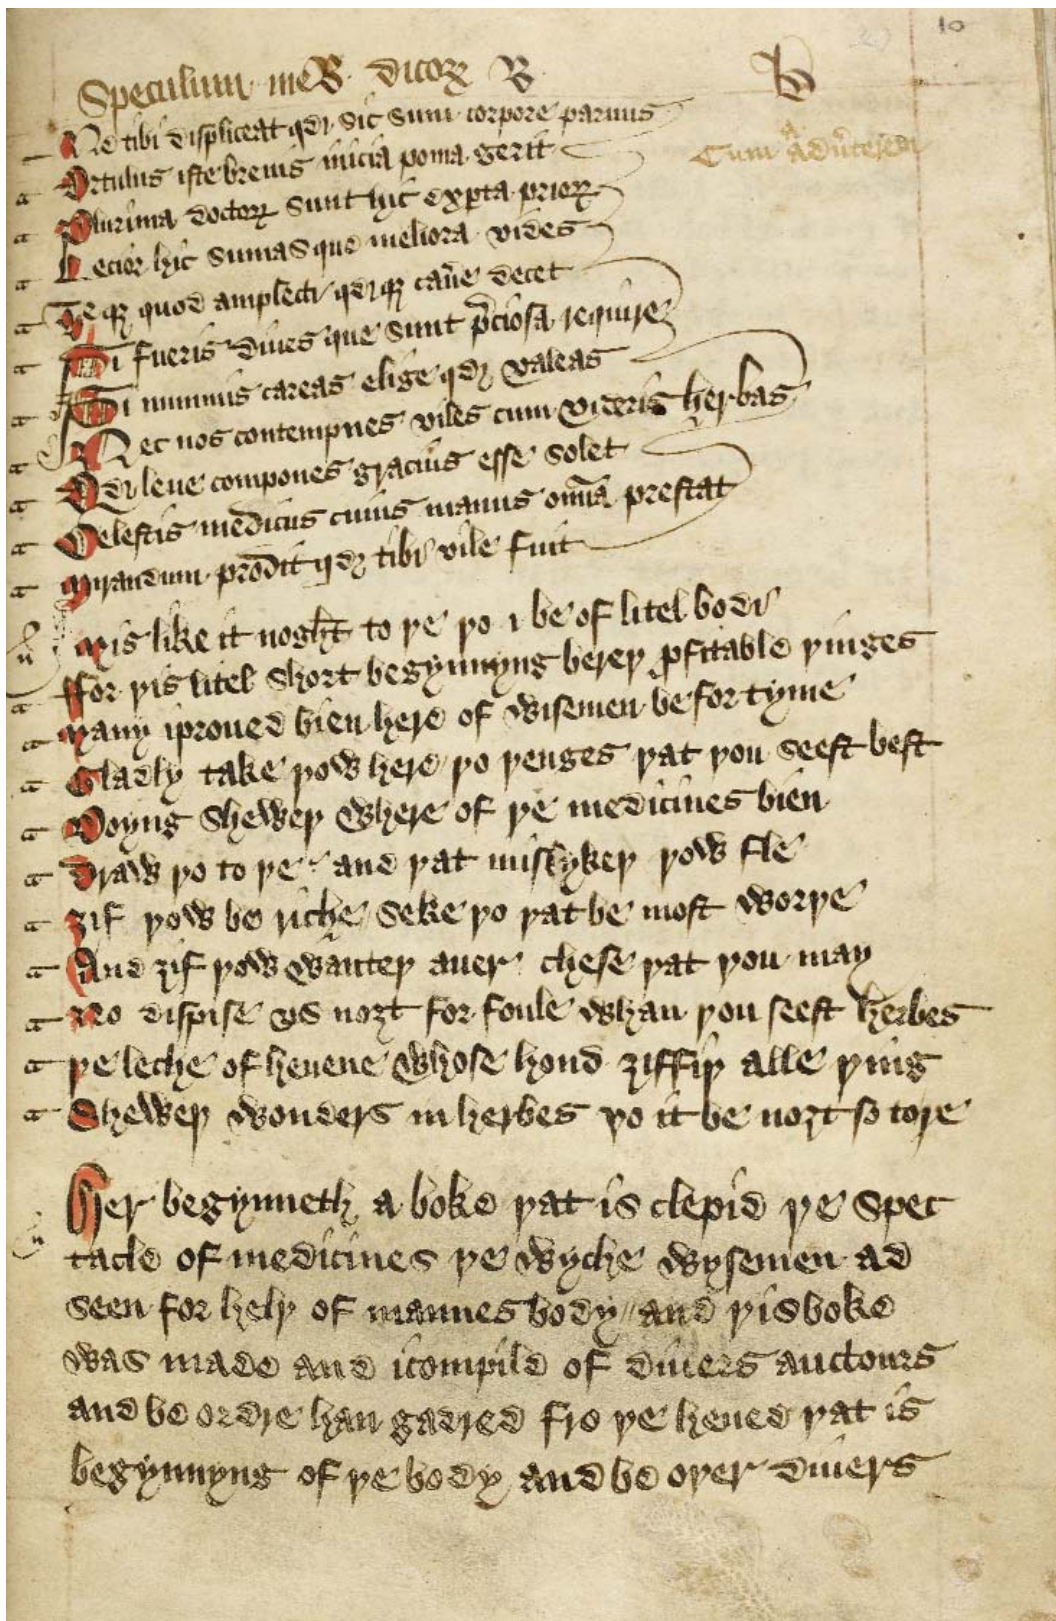 10
Speculum me dicoꝝ
Ne tibi displiceat qđ sic sum corpore paruus
Ortulus iste breuis inicia poma gerit
Plurima doctoꝝ sunt hic exꝑta prioꝝ
Lector hic sumas que meliora vides
quod amplecti cau͛e decet
Si fueris diues que sunt p͛ciosa require
Si nummis careas elige qđ valeas
Nec nos contempnes viles cum videris herbas
Qđ leue compones gracius esse solet
Celestis medicus cuius manus om̄ia prestat
Mirandum prodit qđ tibi vile fuit
Mis like it noght to þe þo i be of litel bodi
ffor þis litel short begynnyng bereþ ꝓfitable þinges
Many iproued bien here of wisemen be for tyme
Gladly take þow here þo þenges þat þou seest best
Doyng sheweþ where of þe medicines bien
Draw þo to þe and þat mislykeþ þow fle
ȝif þow be riche seke þo þat be most worþe
And ȝif þow wanteþ auer chese þat þou may
No dispise vs noȝt for foule whan þou seest herbes
þe leche of heuene whose hond ȝiffiþ alle þing
Sheweþ wonders in herbes þo it be noȝt so tore
Her begynneth a boke þat is clepid þe spec
tacle of medicines þe wyche wysemen ad
seen for help of mannes body // and þis boke
was made and icompild of diuers auctours
and be ordre han gadred fro þe heued þat is
begynnyng of þe body and be oþer diuers